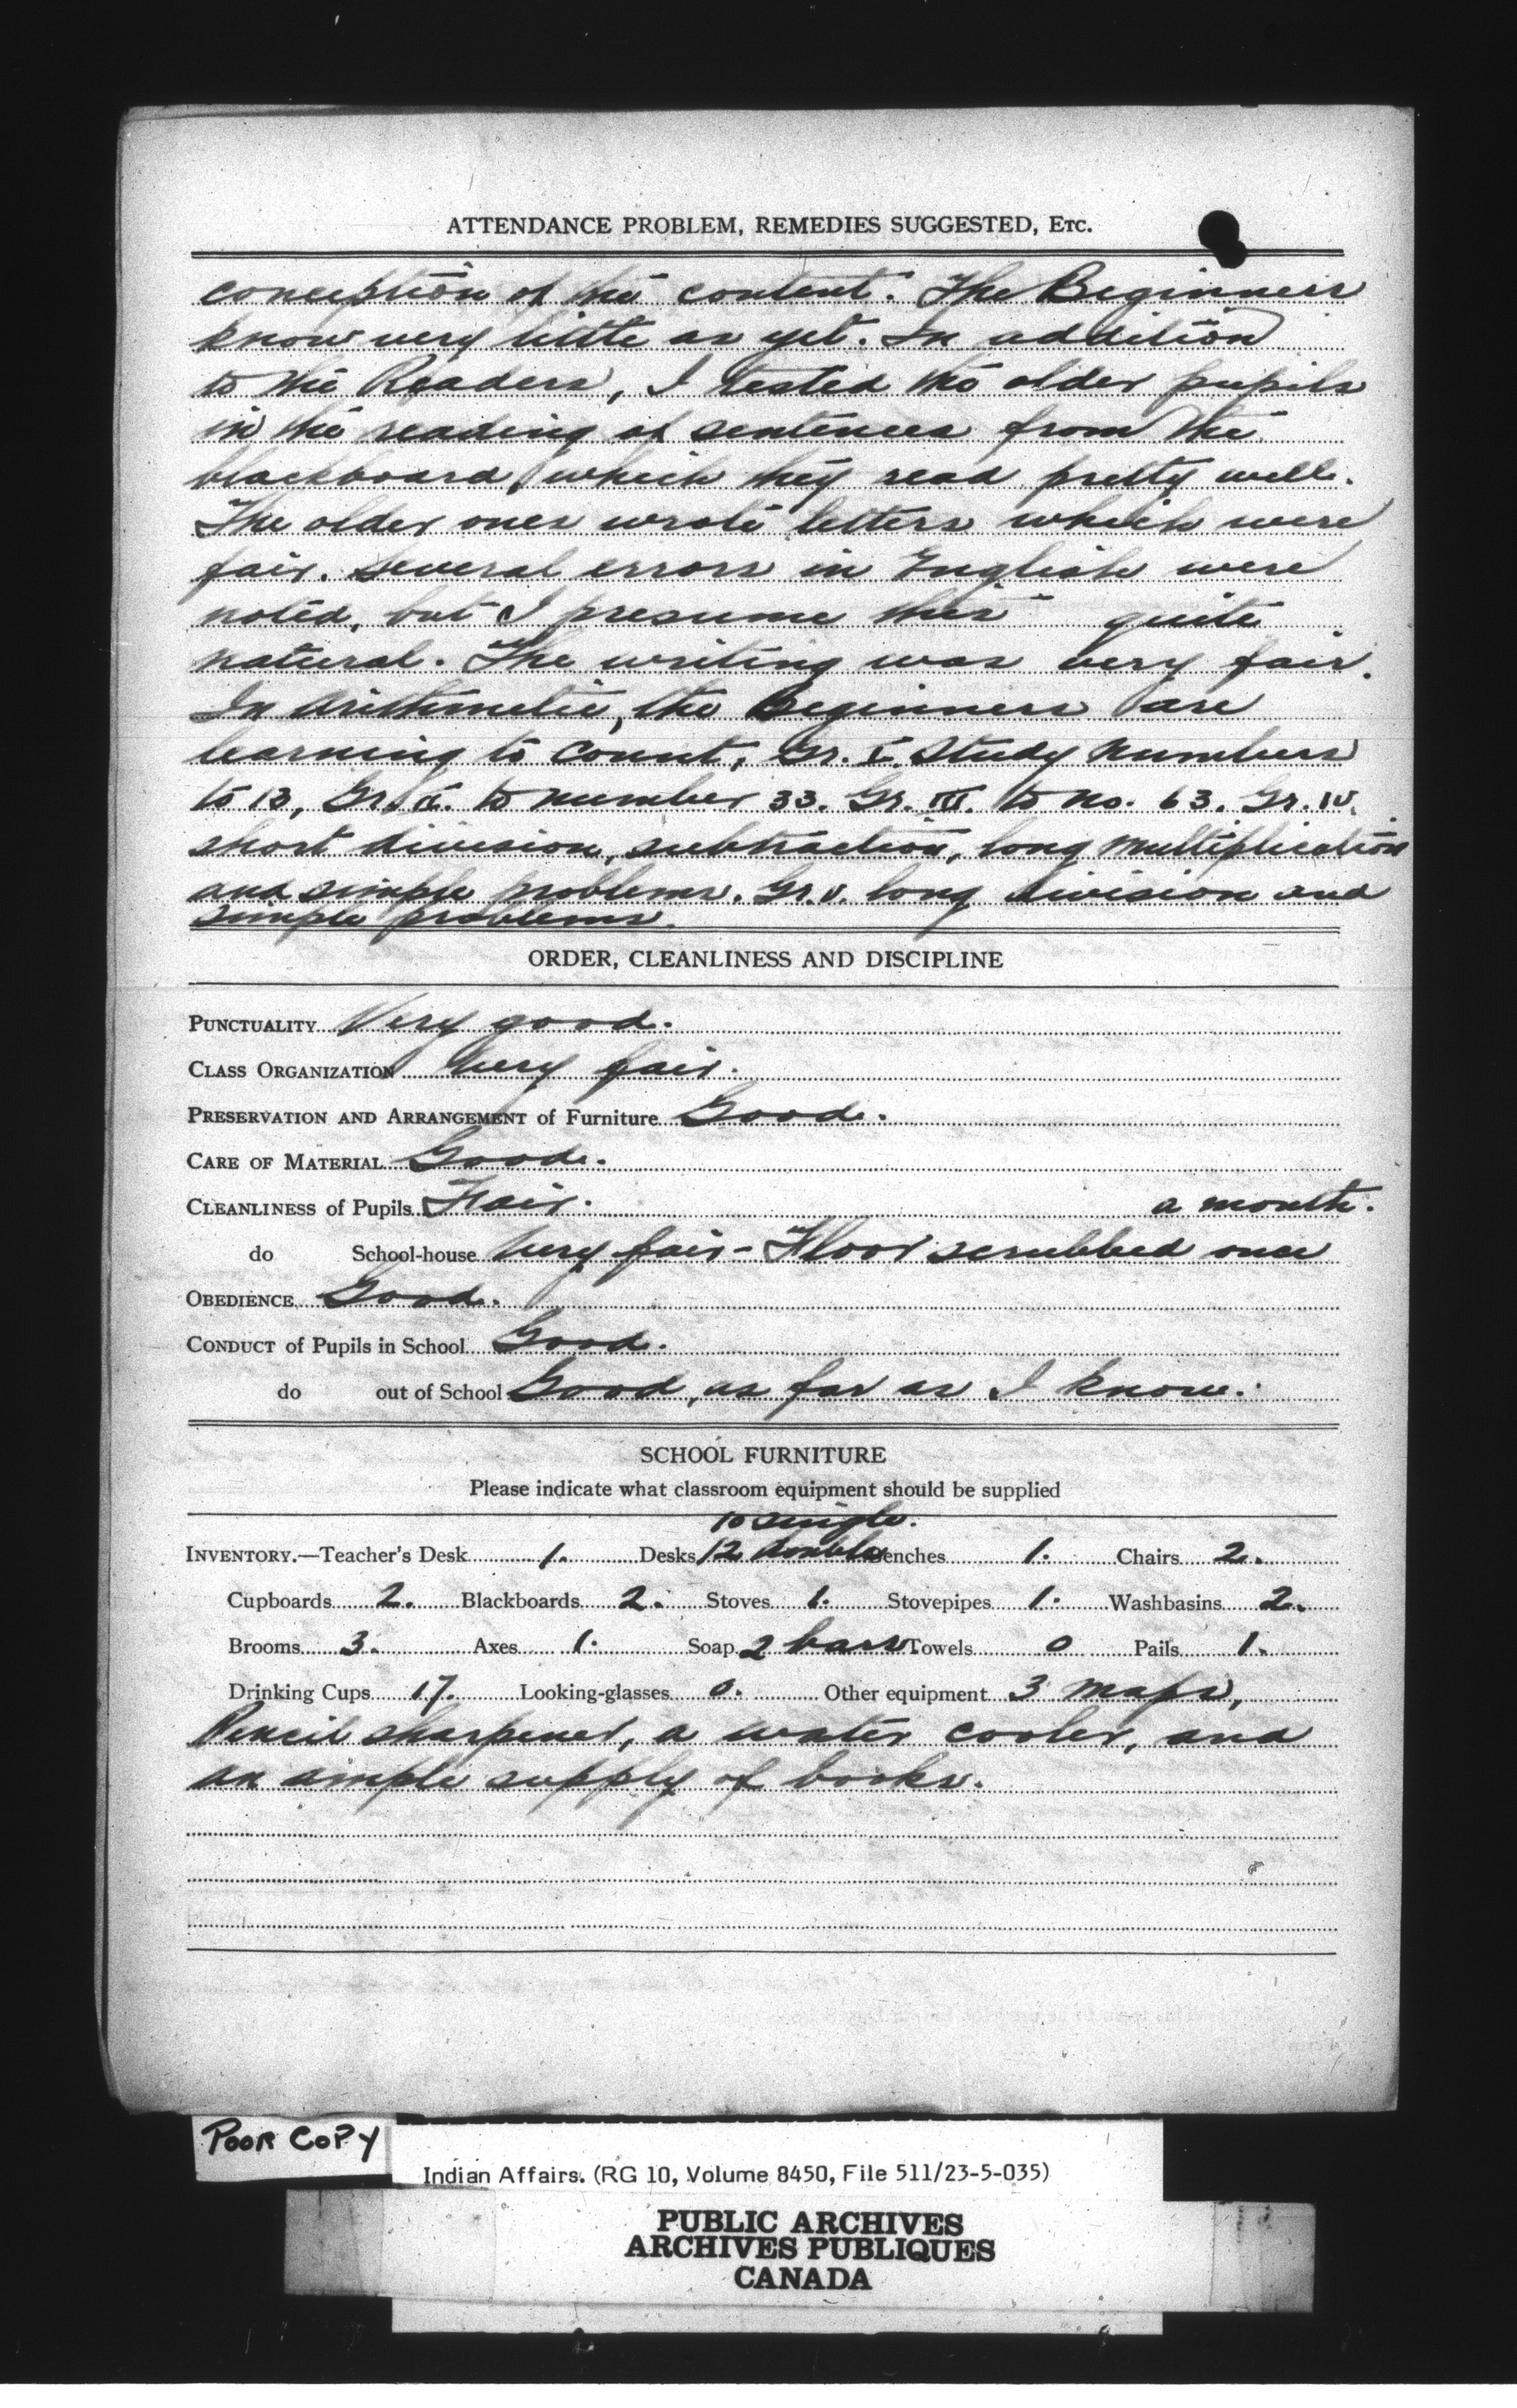 ATTENDANCE PROBLEM, REMEDIES SUGGESTED, Etc.
conception of the content. The Beginners
know very little as yet. In addition
to the Readers, I tested the older pupils
in the reading of sentences from the
blackboard, which they read pretty well.
The older ones wrote letters which were
fair. Several errors in English were
noted, but I presume this quite
natural. The writing was very fair.
In Arithmetic, the Beginners are
learning to count, Gr. I. Study Numbers
to 13, Gr. II. to number 33. Gr. III. to no. 63. Gr. IV.
short division, subtraction, long multiplication
and simple problems. Gr. V. long division and
simple problems.
ORDER, CLEANLINESS AND DISCIPLINE
Punctuality Very good.
Class Organization Very fair.
Preservation and Arrangement of Furniture Good.
Care of Material Good.
Cleanliness of Pupils Fair. a month.
do School-house Very fair - Floor scrubbed once
Obedience Good.
Conduct of Pupils in School Good.
do out of School Good, as far as I know.
SCHOOL FURNITURE
Please indicate what classroom equipment should be supplied
10 single.
Inventory.—Teacher's Desk 1. Desks 12 double Benches 1. Chairs 2.
Cupboards 2. Blackboards 2. Stoves 1. Stovepipes 1. Washbasins 2.
Brooms 3. Axes 1. Soap 2 bars Towels 0 Pails 1.
Drinking Cups 17. Looking-glasses 0. Other equipment 3 maps,
Pencil sharpener, a water cooler, and
an ample supply of books.
POOR COPY
Indian Affairs. (RG 10, Volume 8450, File 511/23-5-035)
PUBLIC ARCHIVES
ARCHIVES PUBLIQUES
CANADA